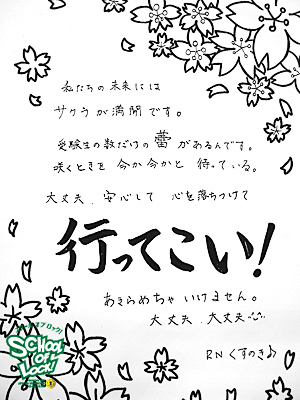 私たちの未来には
サクラが満開です。
受験生の数だけの蕾があるんです。
咲くときを 今か今かと 待っている。
大丈夫、安心して 心を落ちつけて
行ってこい!
あきらめちゃいけません。
大丈夫、大丈夫
RN くすのき♪
SCHOOL
OF
LOCK!